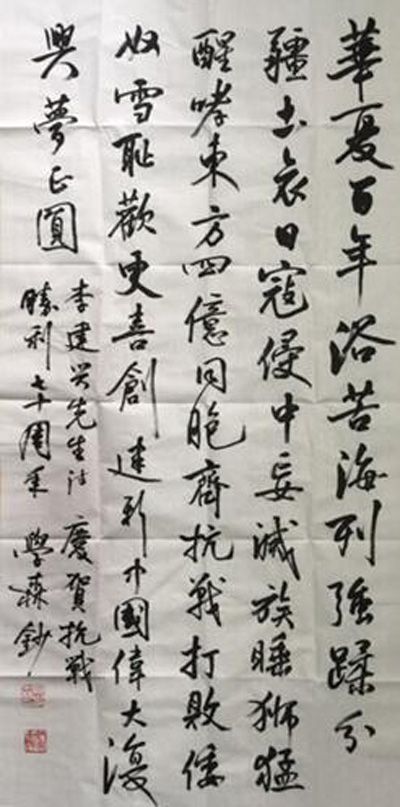 華夏百年浴苦海列强蹂分
疆土哀日寇侵中妄滅族睡狮猛
醒哮東方四億同胞齊抗戰打敗倭
奴雪耻歡更喜創建新中國偉大復
興夢正圓
李建兴先生诗 慶賀抗戰
勝利七十周年 學森鈔